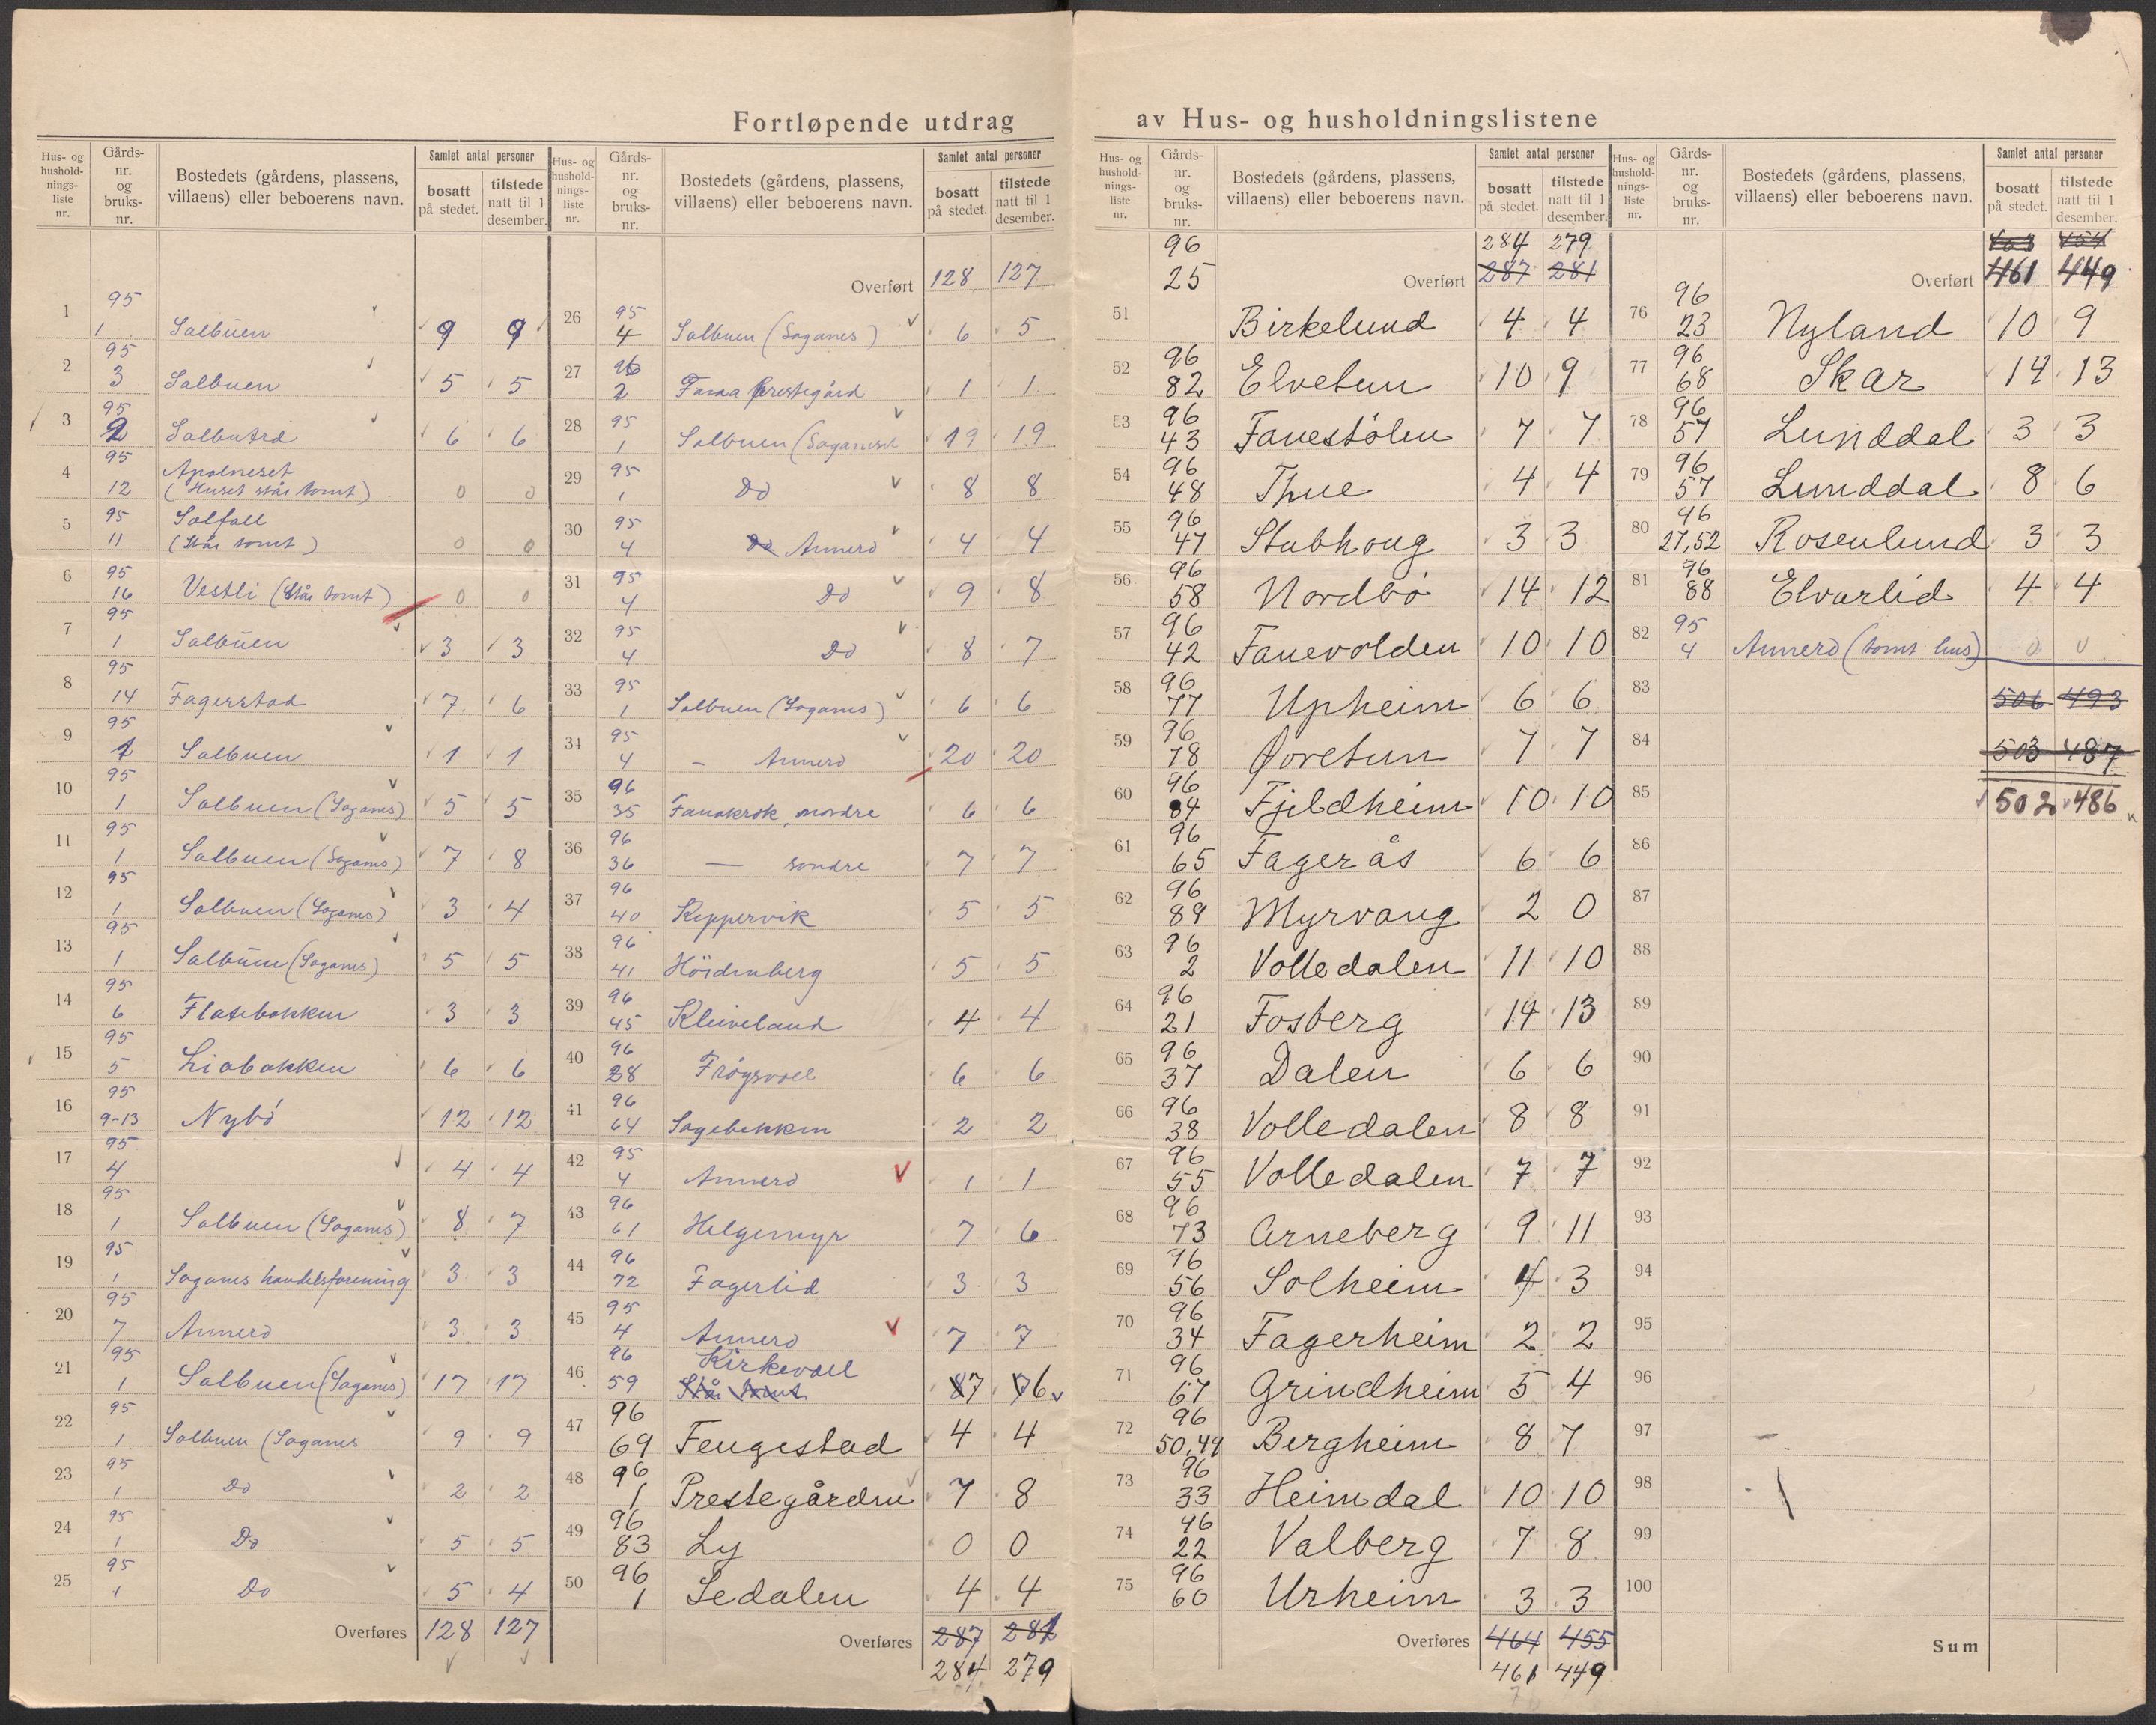 Fortløpende utdrag av Hus- og husholdningslistene
Hus- og husholdningsliste nr. | Gårds- nr. og bruks- nr. | Bostedets (gårdens, plassens, villaens) eller beboerens navn. | Samlet antal personer | bosatt på stedet. | tilstede natt til 1 desember.
1 95 1 Salbuen 9 9
2 95 3 Salbuen 5 5
3 95 2 Salbuen 6 6
4 95 12 Apalneset (Huset står tomt) 0 0
5 95 11 Solfall (Står tomt) 0 0
6 95 16 Vestli (Står tomt) 0 0
7 95 1 Salbuen 3 3
8 95 14 Fagerstad 7 6
9 95 1 Salbuen 1 1
10 95 1 Salbuen (Saganes) 5 5
11 95 1 Salbuen (Saganes) 7 8
12 95 1 Salbuen (Saganes) 3 4
13 95 1 Salbuen (Saganes) 5 5
14 95 6 Flatebakken 3 3
15 95 5 Liabakken 6 6
16 95 9-13 Nybö 12 12
17 95 4 4 4
18 95 1 Salbuen (Saganes) 8 7
19 95 1 Saganes handelsforening 3 3
20 95 7 Annerø 3 3
21 95 1 Salbuen (Saganes) 17 17
22 95 1 Salbuen (Saganes 9 9
23 95 1 Do 2 2
24 95 1 Do 5 5
25 95 1 Do 5 4
Overføres 128 127
Hus- og husholdningsliste nr. | Gårds- nr. og bruks- nr. | Bostedets (gårdens, plassens, villaens) eller beboerens navn. | Samlet antal personer | bosatt på stedet. | tilstede natt til 1 desember.
Overført 128 127
26 95 4 Salbuen (Saganes) 6 5
27 96 2 Fana prestegård 1 1
28 95 1 Salbuen (Saganes 19 19
29 95 1 Do 8 8
30 95 4 Do Annerø 4 4
31 95 4 Do 9 8
32 95 4 Do 8 7
33 95 1 Salbuen (Saganes) 6 6
34 95 4 - Annerø 20 20
35 96 35 Fanakrok, nordre 6 6
36 96 36 — søndre 7 7
37 96 40 Keppervik 5 5
38 96 41 Höidenberg 5 5
39 96 45 Kleiveland 4 4
40 96 28 Frøysvoll 6 6
41 96 64 Sagebekken 2 2
42 95 4 Annerø 1 1
43 96 61 Helgemyr 7 6
44 96 72 Fagerlid 3 3
45 95 4 Annerø 7 7
46 96 59 Kirkevoll Står tomt 87 76
47 96 69 Fengestad 4 4
48 96 1 Prestegården 7 8
49 96 83 Ly 0 0
50 96 1 Sedalen 4 4
Overføres 287 281
284 279
Hus- og husholdningsliste nr. | Gårds- nr. og bruks- nr. | Bostedets (gårdens, plassens, villaens) eller beboerens navn. | Samlet antal personer | bosatt på stedet. | tilstede natt til 1 desember.
284 279
Overført 287 281
51 96 25 Birkelund 4 4
52 96 82 Elvetun 10 9
53 96 43 Fanestölen 7 7
54 96 48 Thue 4 4
55 96 47 Stabhoug 3 3
56 96 58 Nordbö 14 12
57 96 42 Fanevolden 10 10
58 96 77 Upheim 6 6
59 96 78 Øvretun 7 7
60 96 84 Fjeldheim 10 10
61 96 65 Fagerås 6 6
62 96 89 Myrvang 2 0
63 96 2 Volledalen 11 10
64 96 21 Fosberg 14 13
65 96 37 Dalen 6 6
66 96 38 Volledalen 8 8
67 96 55 Volledalen 7 7
68 96 73 Arneberg 9 11
69 96 56 Solheim 4 3
70 96 34 Fagerheim 2 2
71 96 67 Grindheim 5 4
72 96 50,49 Bergheim 8 7
73 96 33 Heimdal 10 10
74 96 22 Valberg 7 8
75 96 60 Urheim 3 3
Overføres 464 455
461 449
Hus- og husholdningsliste nr. | Gårds- nr. og bruks- nr. | Bostedets (gårdens, plassens, villaens) eller beboerens navn. | Samlet antal personer | bosatt på stedet. | tilstede natt til 1 desember.
Overført 461 449
76 96 23 Nyland 10 9
77 96 68 Skar 14 13
78 96 57 Lunddal 3 3
79 96 57 Lunddal 8 6
80 96 27,52 Rosenlund 3 3
81 96 88 Elvarlid 4 4
82 95 4 Annerø (tomt hus) 0 0
83 506 493
84 503 487
85 502 486
86
87
88
89
90
91
92
93
94
95
96
97
98
99
100
Sum